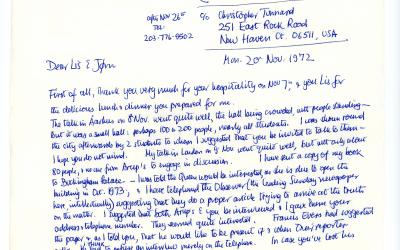 after Nov 26th
TEL.
203-776-9502
c/o Christopher Tunnard
251 East Rock Road
New Haven Ct. 06511, USA
Mon. 20 Nov. 1972
Dear Lis & John
First of all, thank you very much for your hospitality on Nov 7th, & you Lis for
the delicious lunch & dinner you prepared for me.
The talk in Aarhus on 8 Nov. went quite well, the hall being crowded, with people standing —
But it was a small hall: perhaps 100 to 200 people, nearly all students. I was shown round
the city afterwards by 2 students to whom I suggested that you be invited to talk to them —
I hope you do not mind. My talk in London on 9 Nov. went quite well, but with only about
80 people, & none from Arup's to engage in discussion. I have sent a copy of my book
to Buckingham Palace — I was told the Queen would be interested, as she is due to open the
building in Oct. 1973; & I have telephoned the Observer (the leading Sunday newspaper
here, intellectually) suggesting that they do a proper article trying to arrive at the truth
on the matter. I suggested that both Arup's & you be interviewed & I gave them your
address & telephone number. They seemed quite interested. Francis Evers had suggested
the paper &, as I told you, that he would like to be present if & when their reporter